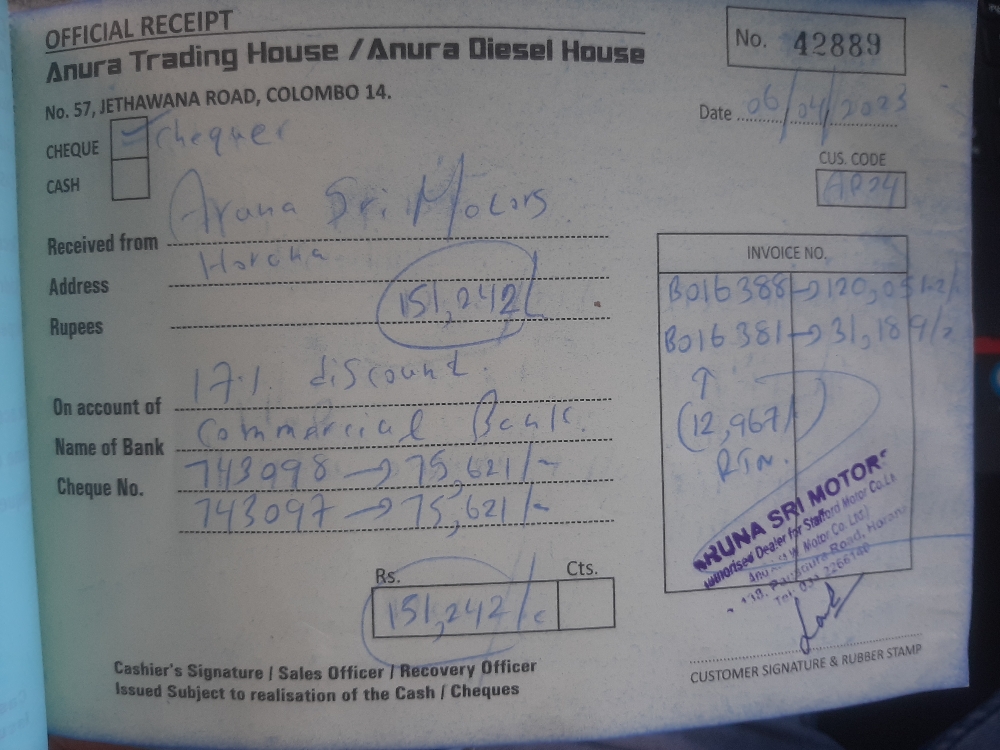 OFFICIAL RECEIPT
Anura Trading House / Anura Diesel House
No. 57, JETHAWANA ROAD, COLOMBO 14.
No. 42889
Date 06/04/2023
CHEQUE Cheque
CASH
CUS. CODE
AP24
Received from Aruna Sri Motors
Address Horana
Rupees 151,242/
INVOICE NO.
B016388 → 120,0
B016381 → 31,189/-
(12,967/)
RTN.
On account of 17% discount
Name of Bank Commercial Bank
Cheque No. 743098 → 75,621/-
743097 → 75,621/-
Rs. Cts.
151,242/-
ARUNA SRI MOTORS
Authorised Dealer for Stafford Motor Co.Ltd
Motor Co. Ltd.
Road, Horana
Cashier's Signature / Sales Officer / Recovery Officer
Issued Subject to realisation of the Cash / Cheques
CUSTOMER SIGNATURE & RUBBER STAMP